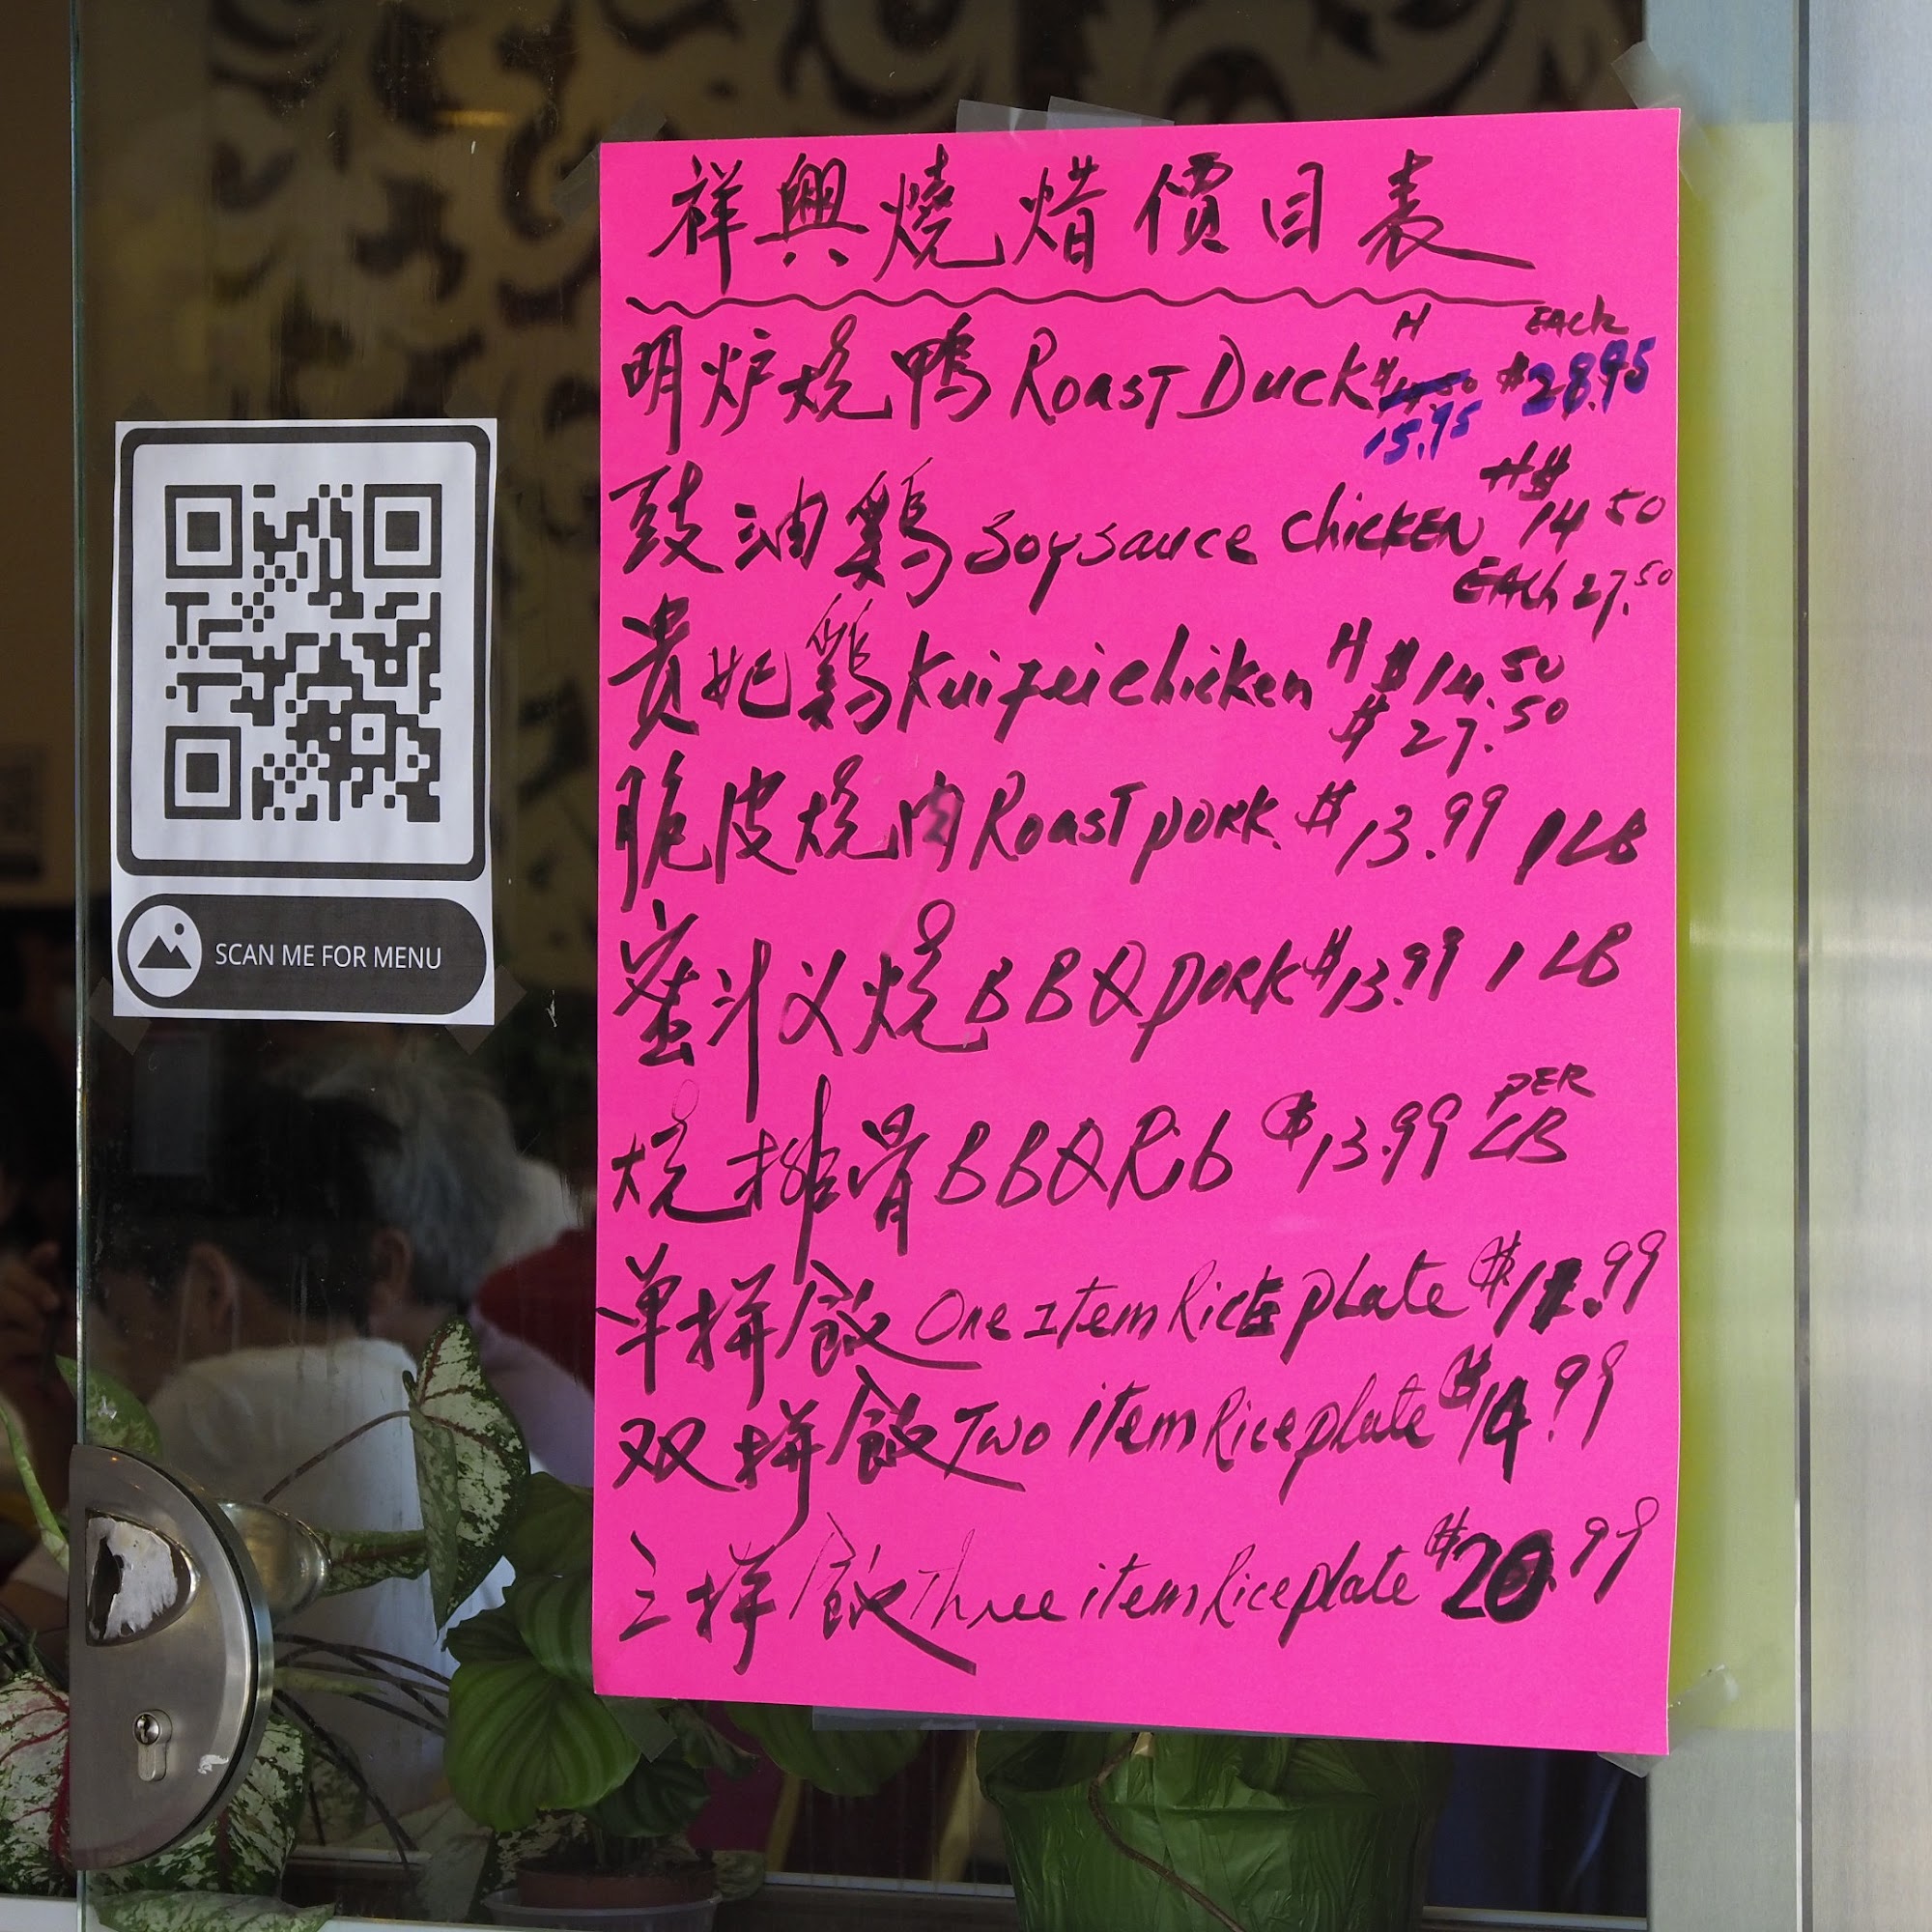 祥興燒烤價目表
H EACH
明炉烧鴨 Roast Duck 15.95 $28.95
H$
豉油鷄 Soysauce Chicken 14.50
EACH 27.50
貴妃鷄 Kuifei chicken H $14.50
$27.50
脆皮烧肉 Roast pork. $13.99 1 LB
蜜汁义烧 BBQ pork $13.99 1 LB
烧排骨 BBQ Rib $13.99 PER LB
单拼飯 One Item Rice plate .99
双拼飯 Two item Rice plate $14.99
三拼飯 Three item Rice plate $20.99
SCAN ME FOR MENU